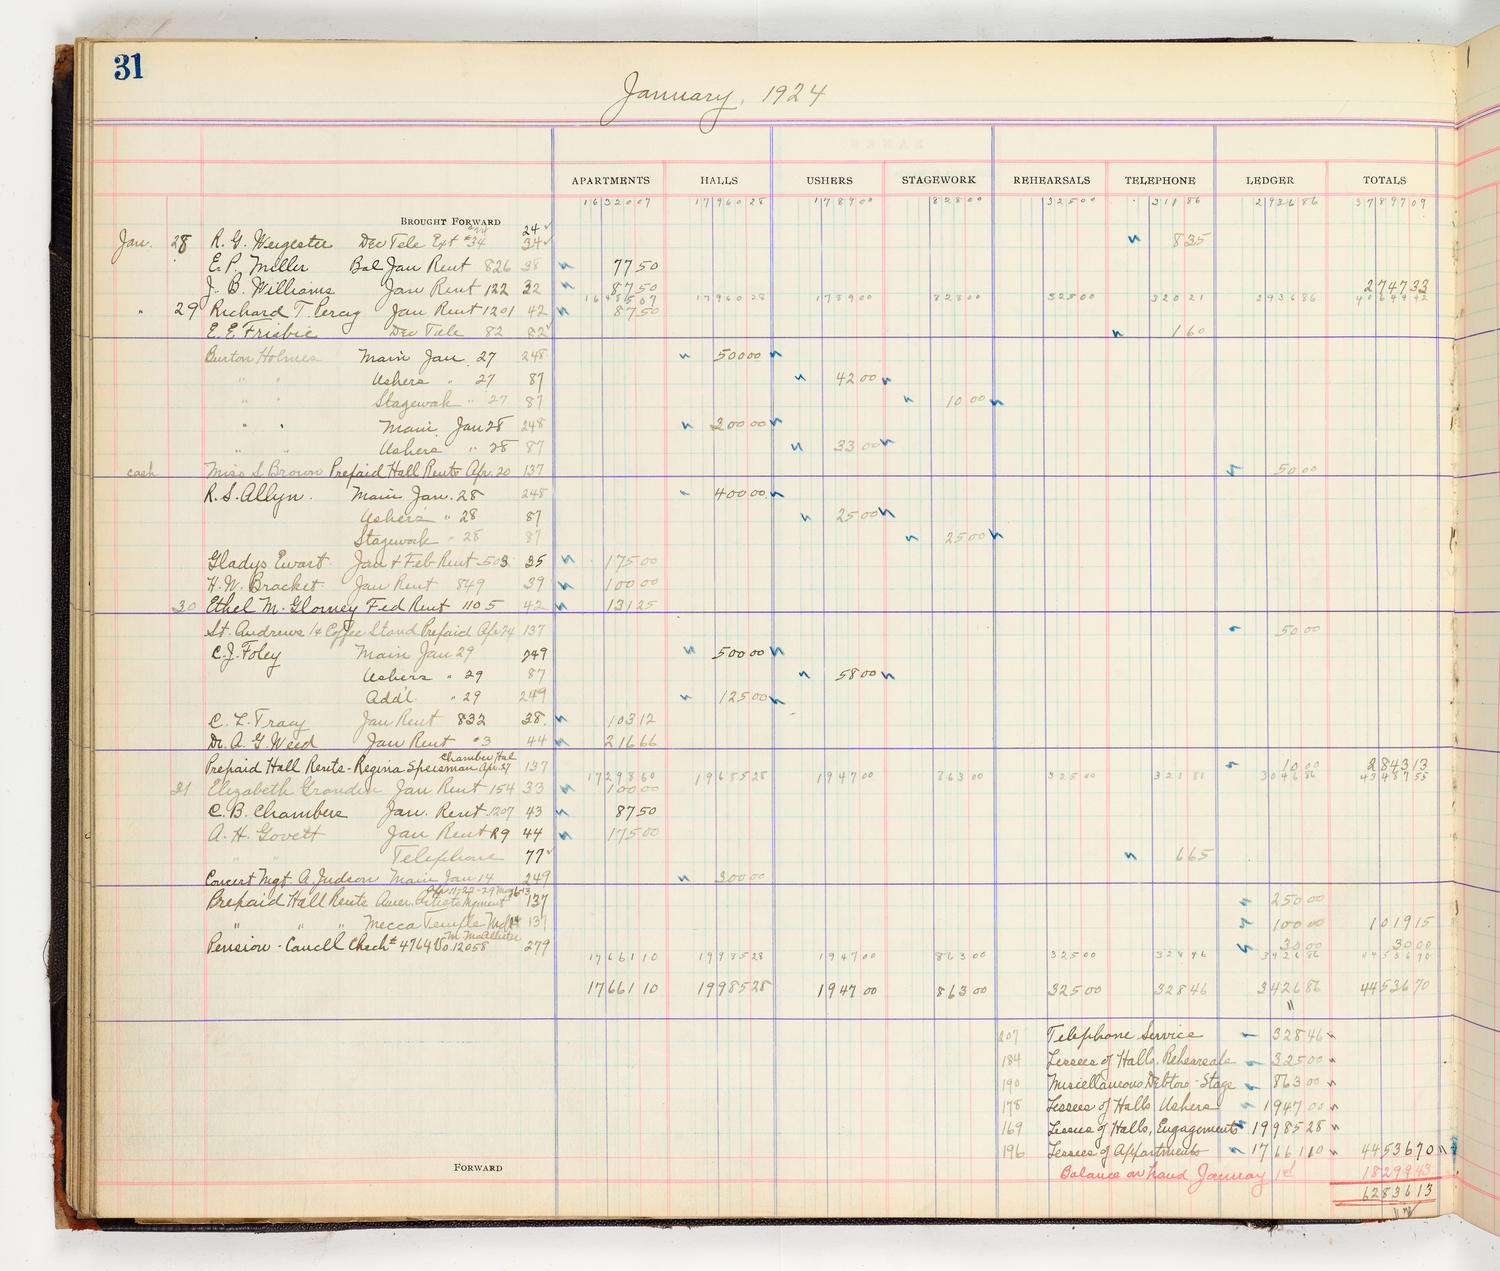 31
January, 1924
APARTMENTS HALLS USHERS STAGEWORK REHEARSALS TELEPHONE LEDGER TOTALS
BROUGHT FORWARD 24 1632007 1796028 178900 82800 32500 31186 293686 3789709
Jan. 28 R. G. Weigester Dec Tele Ext #34 34 835
E. P. Miller Bal Jan Rent 826 38 7750
J. B. Williams Jan Rent 122 32 8750 274733
1648507 1796028 178900 82800 32500 32021 293686 4064442
" 29 Richard T. Percy Jan Rent 1201 42 8750
E. E. Frisbie Dec Tele 82 82 160
Burton Holmes Main Jan. 27 248 50000
" " Ushers " 27 87 4200
" " Stagework " 27 87 1000
" " Main Jan 28 248 20000
" " Ushers " 28 87 3300
cash Miss S Brown Prepaid Hall Rents Apr. 20 137 5000
R. S. Allyn. Main Jan. 28 248 40000
Ushers " 28 87 2500
Stagework " 28 87 2500
Gladys Ewart Jan + Feb Rent 503 35 17500
H. W. Bracket Jan Rent 849 39 10000
30 Ethel M. Glomey Fed Rent 1105 42 13125
St. Andrews 14 Coffee Stand Prepaid Apr 24 137 5000
C. J. Foley Main Jan 29 249 50000
Ushers " 29 87 5800
Add'l " 29 249 12500
C. L. Tracy Jan Rent 832 38 10312
Dr. A. G. Weed Jan Rent #3 44 21666
Chamber Hal
Prepaid Hall Rents - Regina Speisman Apr. 27 137 1000 284313
1729860 1968528 194700 86300 32500 32181 304686 4348755
31 Elizabeth Granden Jan Rent 154 33 10000
C. B. Chambers Jan. Rent 1207 43 8750
A. H. Govett Jan Rent R9 44 17500
" " Telephone 77 665
Concert Mgt. A Judson Main Jan 14 249 30000
Prepaid Hall Rents Amer. Artists Mgment 137 25000
" " " Mecca Temple 137 10000 101915
Pension - Cancell Check # 4764 Vo. 12058 279 3000 3000
1766110 1998528 194700 86300 32500 32846 342686 4453670
1766110 1998528 194700 86300 32500 32846 342686 4453670
"
207 Telephone Service 32846
184 Lessees of Halls, Rehearsals 32500
190 Miscellaneous Debtors - Stage 86300
178 Lessees of Halls Ushers 194700
169 Lessees of Halls, Engagements 1998528
196 Lessees of Apartments 1766110 4453670
FORWARD
Balance on hand January 1st 1829943
6283613